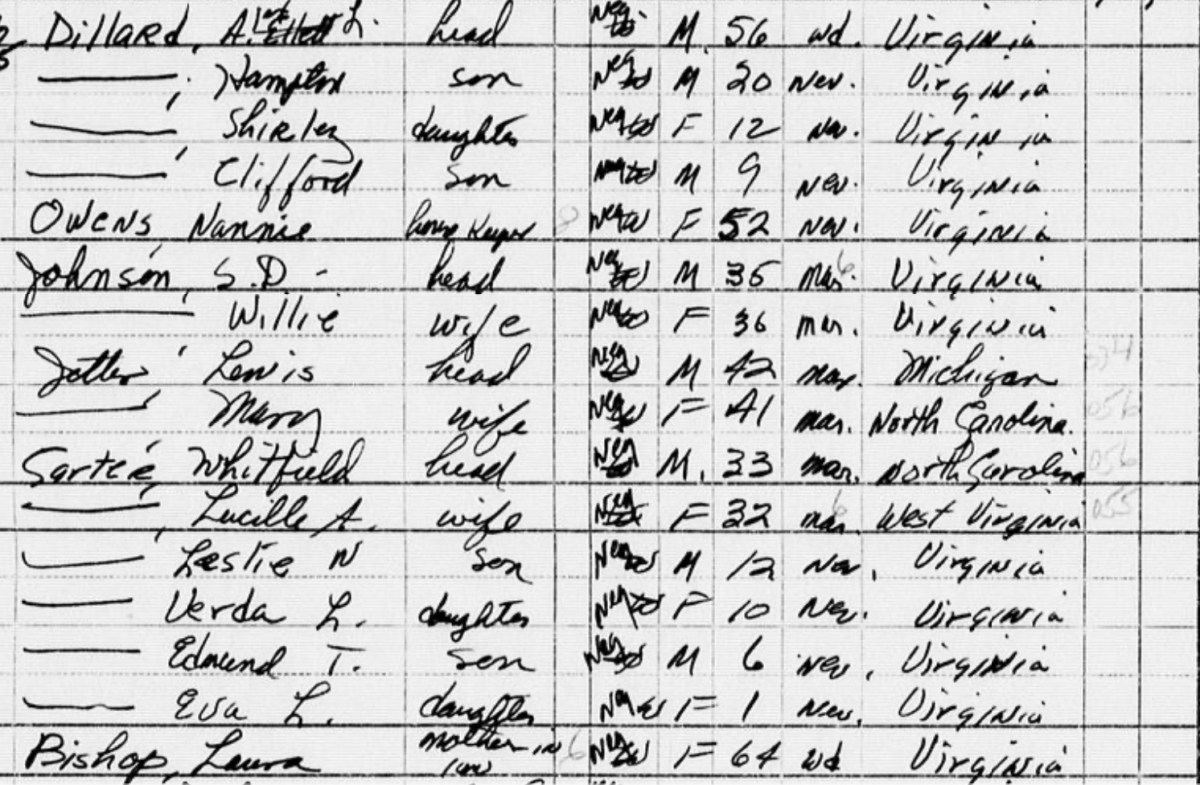 Dillard, A. L. head Neg M. 56 wd. Virginia
——, Hampton son Neg M 20 nev. Virginia
——, Shirley daughter Neg F 12 nev. Virginia
——, Clifford son Neg M 9 nev. Virginia
Owens, Nannie house keeper 8 Neg F 52 nev. Virginia
Johnson, S.D. - head Neg M 35 mar. 6 Virginia
—— Willie wife Neg F 36 mar. Virginia
Lewis head Neg M 42 mar. Michigan 034
——, Mary wife Neg F 41 mar. North Carolina. 056
Whitfield head Neg M. 33 mar. North Carolina 056
——, Lucille A. wife Neg F 32 mar. 6 West Virginia 055
—— Leslie N son Neg M 12 nev. Virginia
—— Verda L. daughter Neg F 10 nev. Virginia
—— Edmund T. son Neg M 6 nev. Virginia
—— Eva L. daughter Neg F 1 nev. Virginia
Bishop, Laura mother in law 6 Neg F 64 wd Virginia